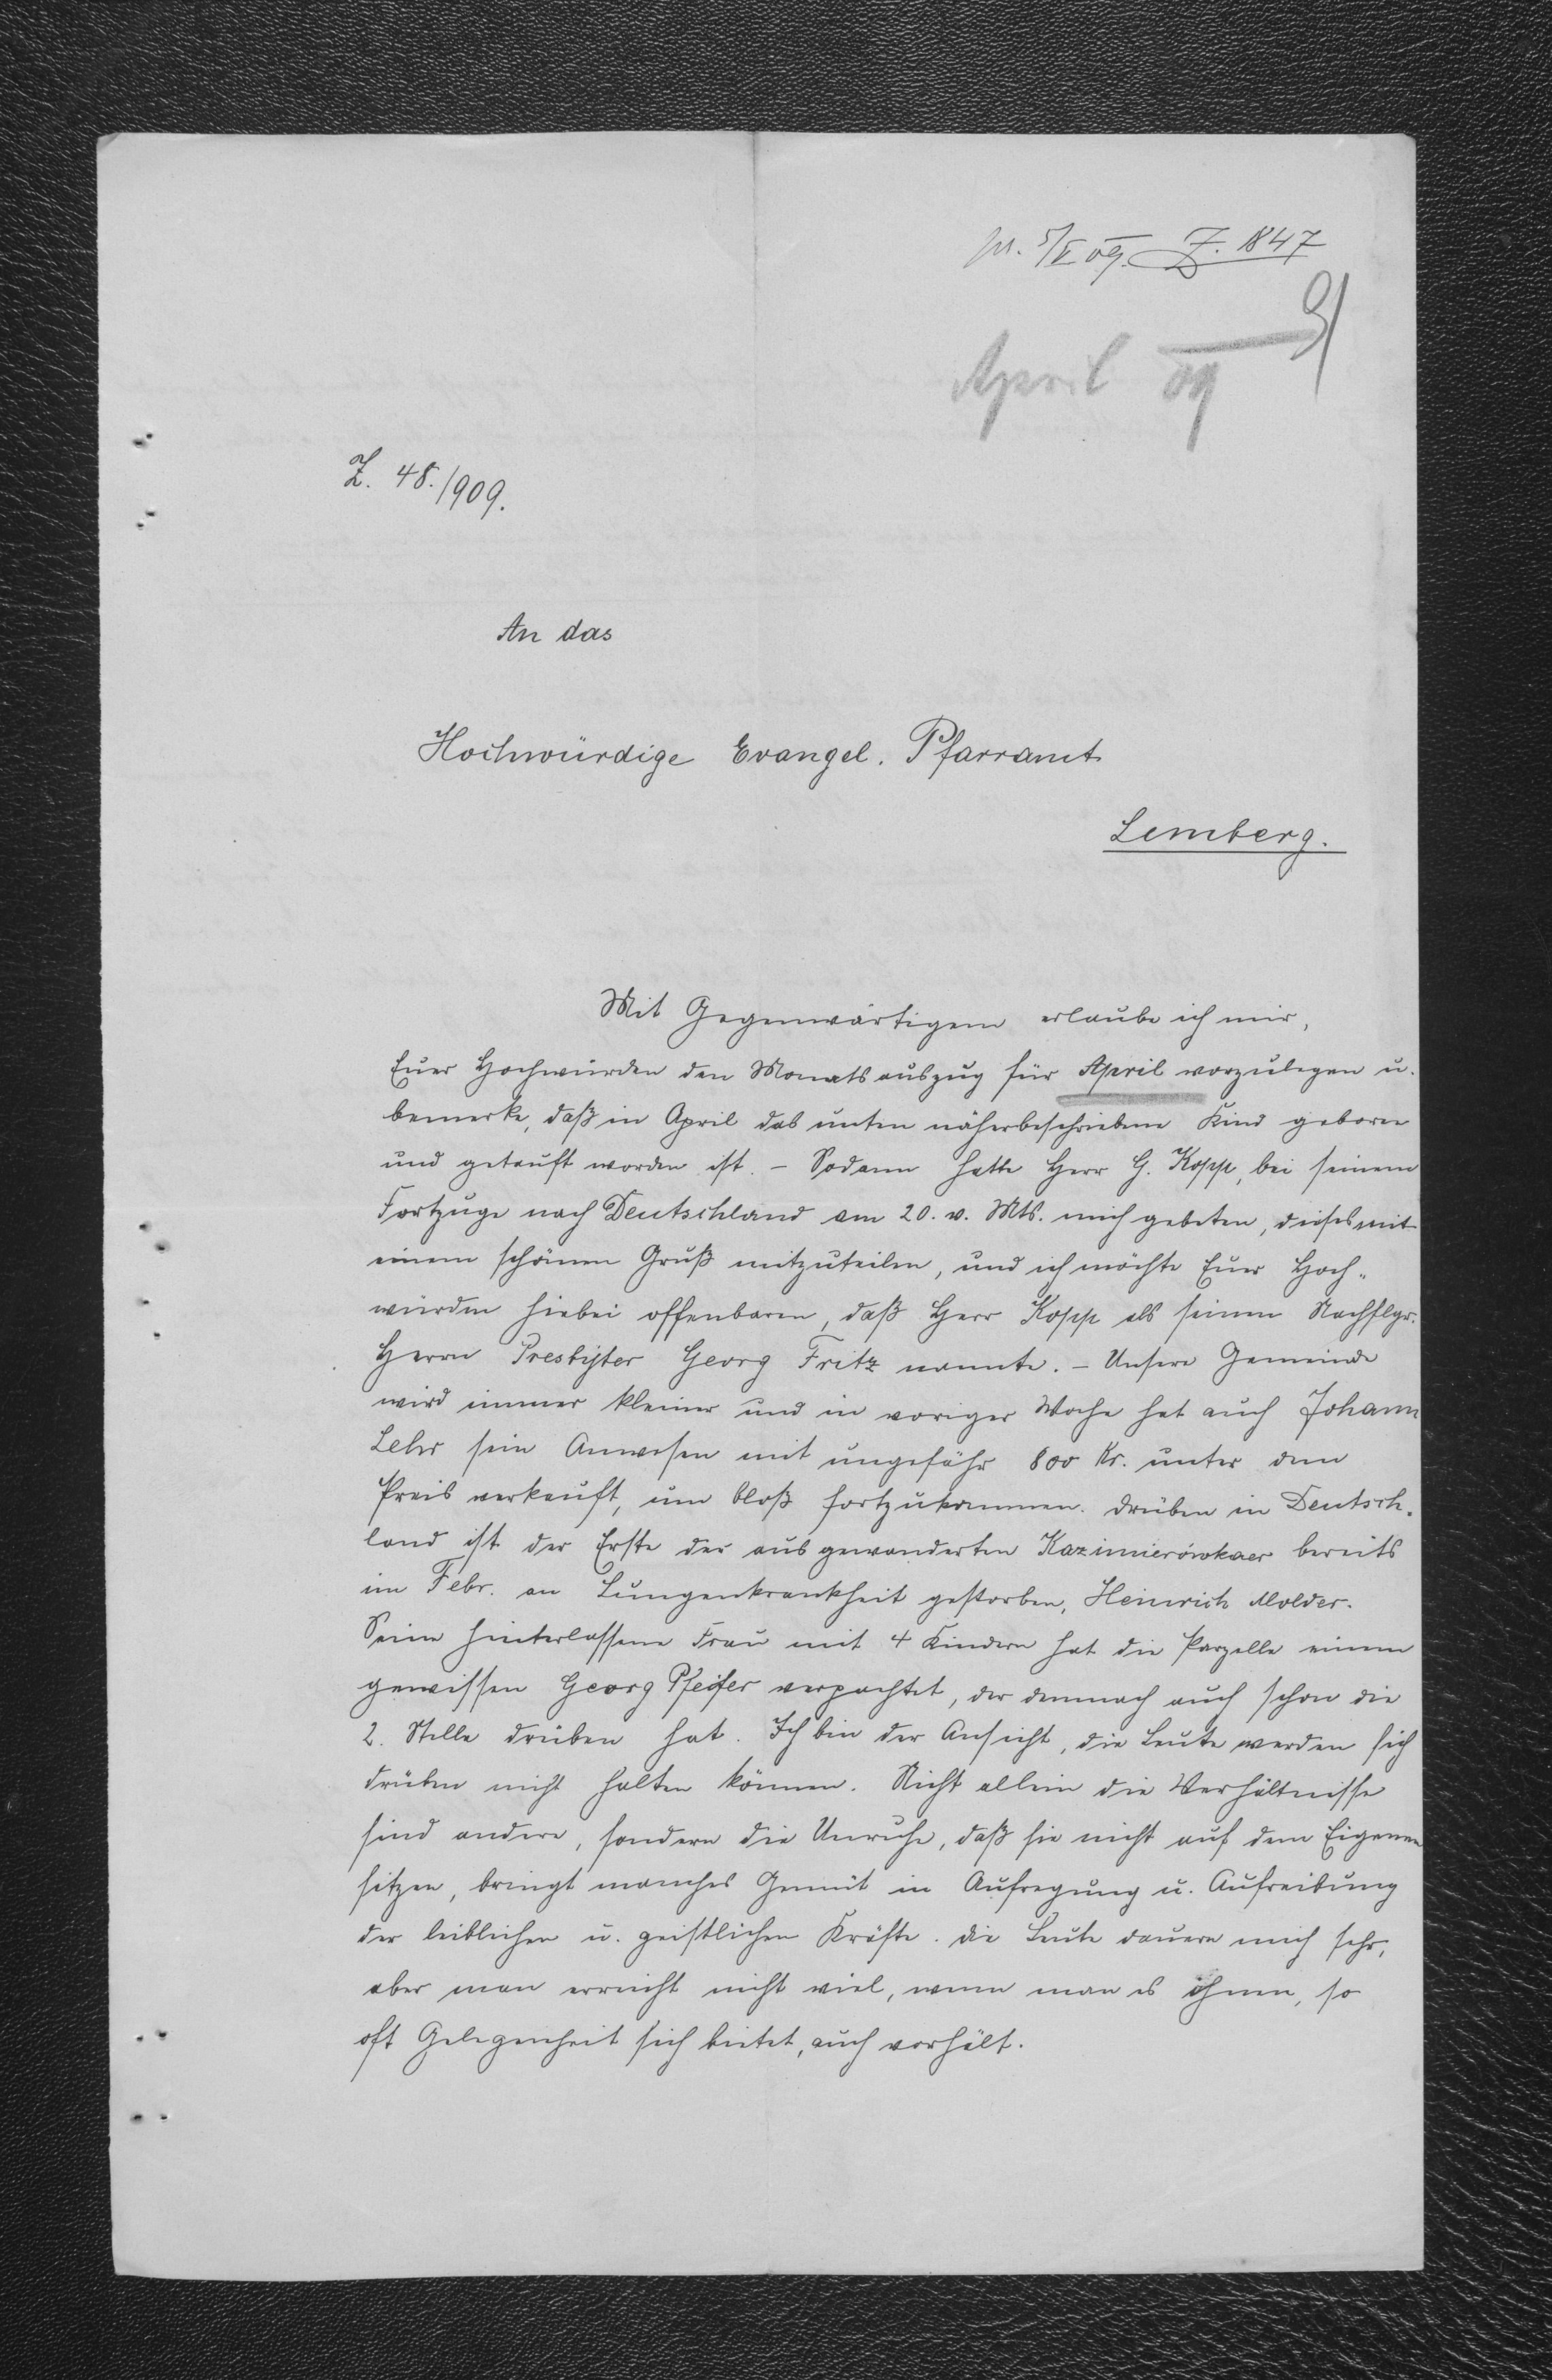 pr. 5/V 09. Z. 1847
April 09
Z. 48./909.
An das
Hochwürdige Evangel. Pfarramt
Lemberg.
Mit Gegenwärtigem erlaube ich mir,
Euer Hochwürden den Monatsauszug für April vorzulegen u.
bemerke, daß in April das unten näherbeschriebene Kind geboren
und getauft worden ist. – Sodann hatte Herr G. Kopp, bei seinem
Fortzuge nach Deutschland am 20. v. Mts. mich gebeten, dieses mit
einem schönen Gruß mitzuteilen, und ich möchte Euer Hoch-
würden hiebei offenbaren, daß Herr Kopp als seinen Nachflgr.
Herrn Presbyter Georg Fritz nannte. – Unsere Gemeinde
wird immer kleiner und in voriger Woche hat auch Johann
Lehr sein Anwesen mit ungefähr 800 Kr. unter dem
Preis verkauft, um bloß fortzukommen. Drüben in Deutsch-
land ist der Erste der ausgewanderten Kazimierówkaer bereits
im Febr. an Lungenkrankheit gestorben, Heinrich Molder.
Seine hinterlassene Frau mit 4 Kindern hat die Parzelle einem
gewissen Georg Pfeifer verpachtet, der demnach auch schon die
2. Stelle drüben hat. Ich bin der Ansicht, die Leute werden sich
drüben nicht halten können. Nicht allein die Verhältnisse
sind andere, sondern die Unruhe, daß sie nicht auf dem Eigenen
sitzen, bringt manches Gemüt in Aufregung u. Aufreibung
der leiblichen u. geistlichen Kräfte. Die Leute dauern mich sehr,
aber man erreicht nicht viel, wenn man es ihnen, so
oft Gelegenheit sich bietet, auch vorhält.